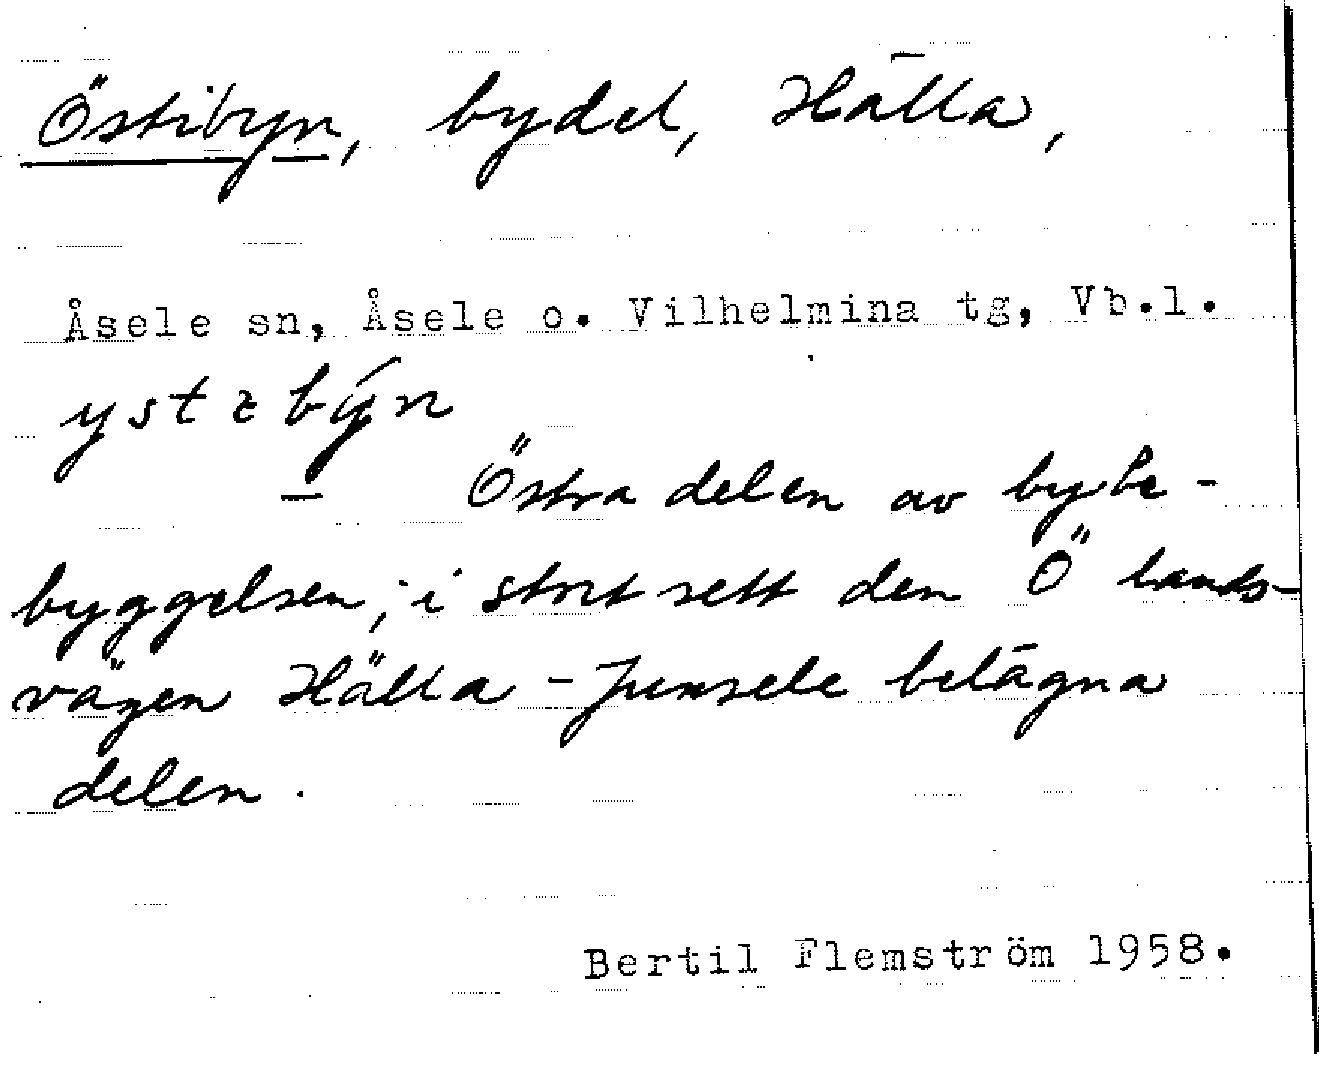 Östibyn, bydel, Hälla,
Åsele sn, Åsele o. Vilhelmina tg, Vb.l.
ystεbýn
Östra delen av bybe-
byggelsen, i stort sett den Ö lands-
vägen Hälla - Junsele belägna
delen.
Bertil Flemström 1958.